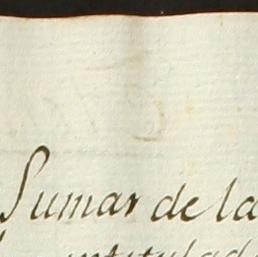 Sumar de la
intitulad